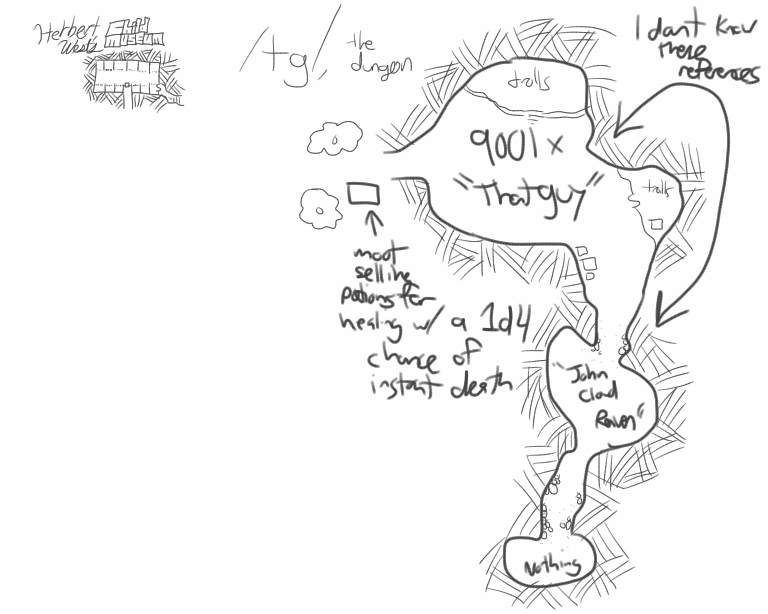 Herbert
West's
/tg/,
the
dungeon
I dant know
these
references
trolls
9001 x
"That guy"
trolls
moot
selling
potions for
healing w/ a 1d4
chance of
instant death
"John
Clad
Raven"
Nothing